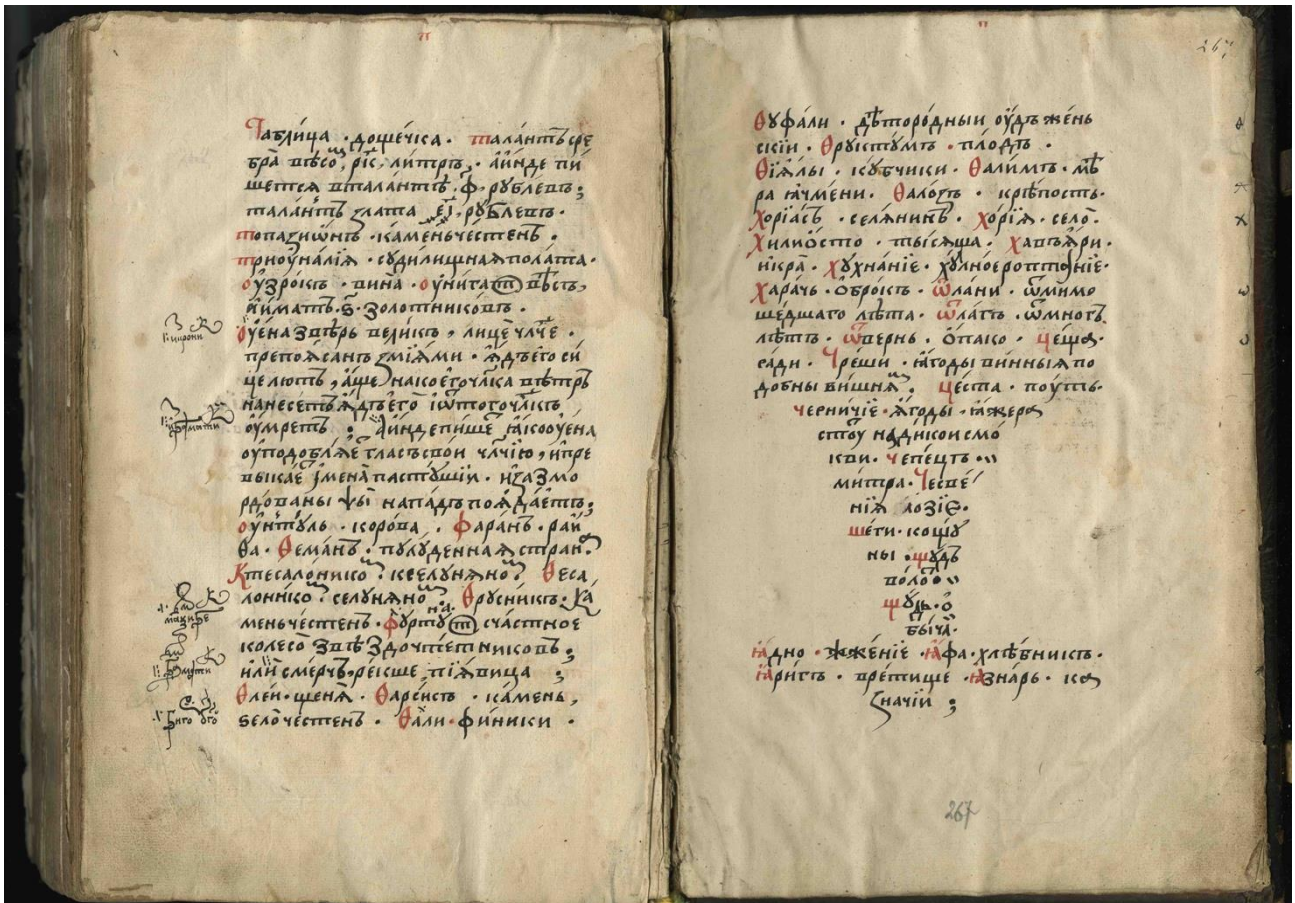 Таблица · дощечка · талантъ сре
бра вѣсо, рк҃е, литръ · аинде пи
шется вталантѣ · ф҃ · рублевъ ;
талантъ злата, е҃і, рублевъ ·
топазиѡнъ · камень честенъ ·
триоуналїя · судилищная полата ·
оузрокъ · вина · оунитат вѣсъ,
аиматъ · ѕ҃ · золотниковъ ·
оуена звѣрь великъ, лице члче ·
препоясанъ змїями · ядъ его си
це лютъ, аще накоего члка вѣтръ
нанесетъ ядъ его иѿтого члкъ
оумретъ ; Аинде пише яко оуена
оуподобляе гласъ свои члчїю, ипре
выкае имена пастушїи · иза змо
рдованы нападъ поядаетъ ;
оунтуль · корова · Фаранъ · раи
ѳа · Ѳеманъ · пулуденная стран
Ктесалонико · кселуняно · Ѳеса
лонико · селуняно · Ѳрусникъ · ка
мень честенъ · фурту т счастное
колесо звѣздочтетниковъ ;
или смерчъ рекше пїявица ;
Ѳлеи · щеня · Ѳарсисъ · камень,
бело честенъ · Ѳали · финики ·
267
Ѳуфали · дѣтородныи оудъ жень
скїи · Ѳруктумъ · плодъ ·
Ѳїялы · кубчики · Ѳалимъ · мѣ
ра ячмени · Ѳалозъ · крѣпость ·
Хорїасъ · селянинъ · Хорїя · село ·
Хилиосто · тысяща · Хавъяри ·
икра · Хухнанїе · хулное роптанїе ·
Харачь · оброкъ · Ѿлани · ѿмимо
шедшаго лѣта · Ѿлатъ · ѿмногъ
лѣтъ · Ѿвернь · Опако · цеща ·
сади · Чреши · ягоды винныя по
добны вишня · цеста · поуть ·
черничїе · ягоды · яже ра
стоу на дикои смо
кви · Чепецъ ·
митра · Чесве
нїя лозїе ·
шети · кошу
ны · щудъ
воло
щудь · о
быча ·
ядно · жженїе · яфа · хлѣбникъ ·
яригъ · вретище · язнарь · ка
значїи ;
267